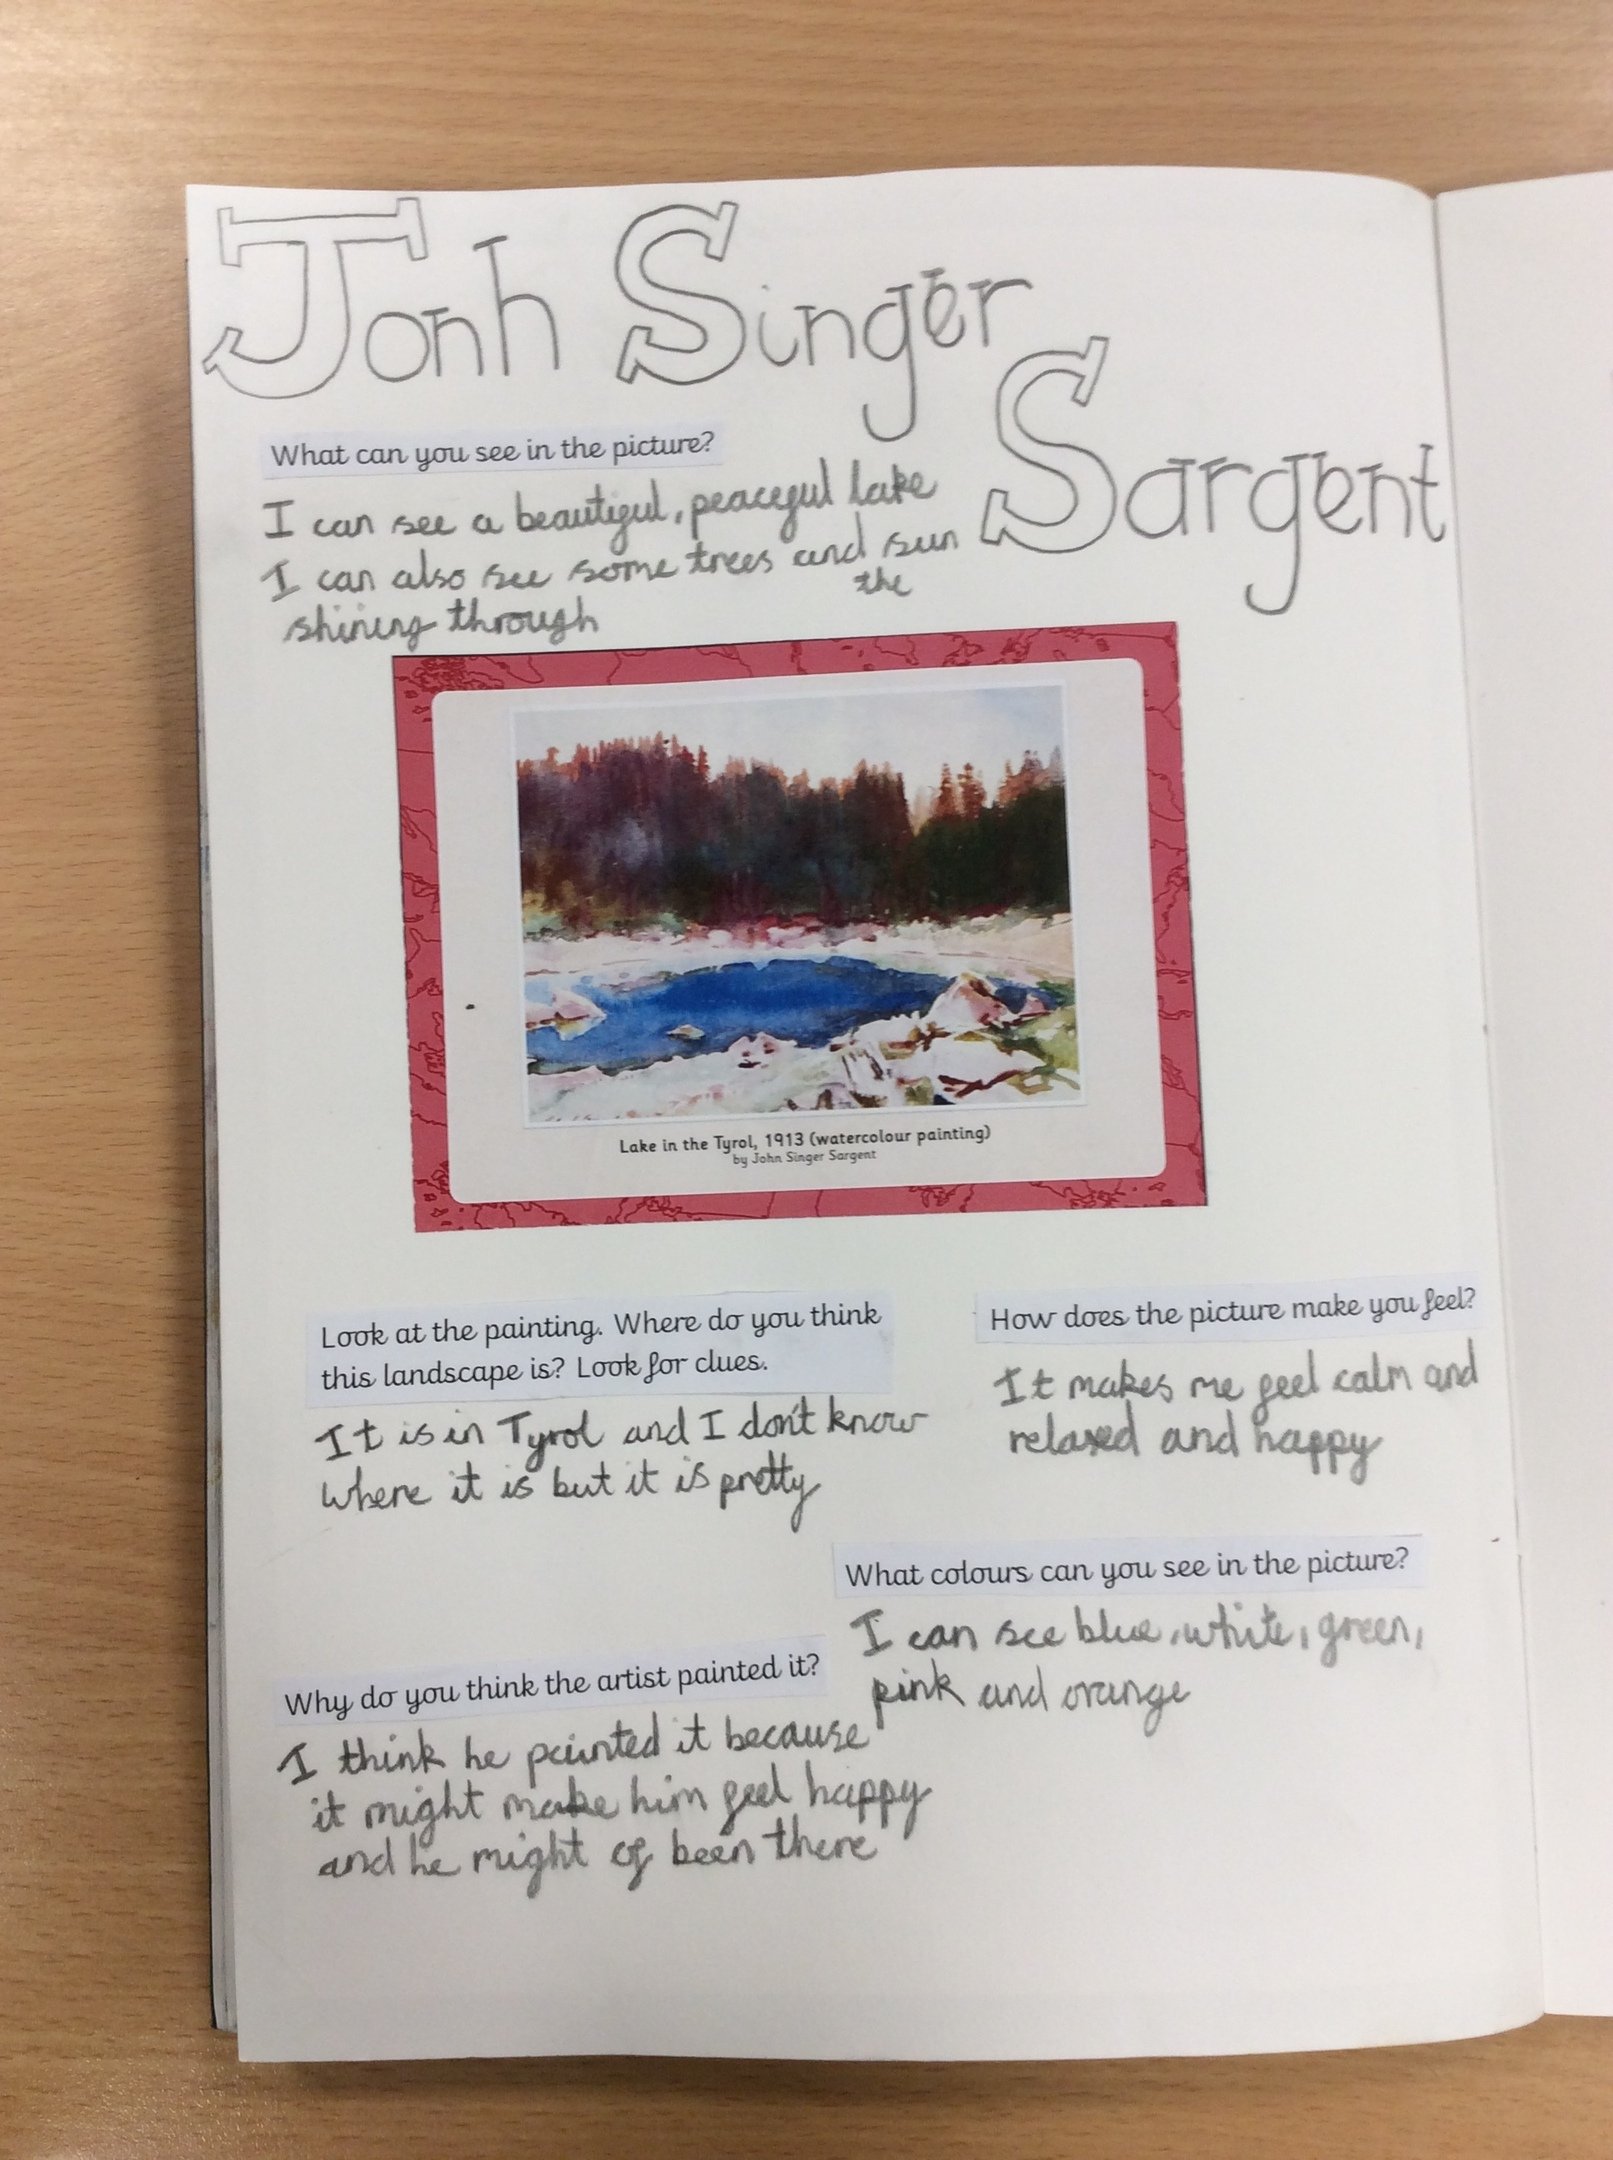 Jonh Singer
Sargent
What can you see in the picture?
I can see a beautiful, peaceful lake
I can also see some trees and sun
the
shining through
Lake in the Tyrol, 1913 (watercolour painting)
by John Singer Sargent
Look at the painting. Where do you think
this landscape is? Look for clues.
It is in Tyrol and I don't know
where it is but it is pretty
How does the picture make you feel?
It makes me feel calm and
relaxed and happy
What colours can you see in the picture?
I can see blue, white, green,
pink and orange
Why do you think the artist painted it?
I think he painted it because
it might make him feel happy
and he might of been there